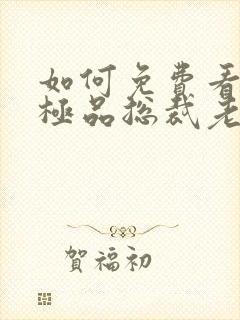 如何免费看
極品总裁老
賀福初